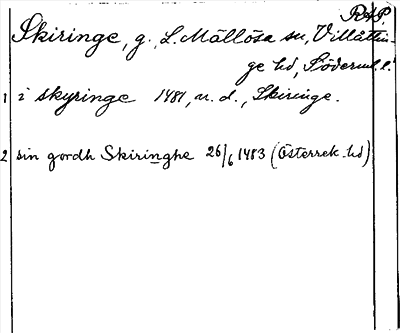 RAP.
Skiringe, g., L. Mällösa sn, Villåttin-
ge hd, Söderml. l.
1 i skyringe 1481, ar. d., Skiringe.
2 sin gordh Skiringhe 26/6 1483 (Österrek. hd)